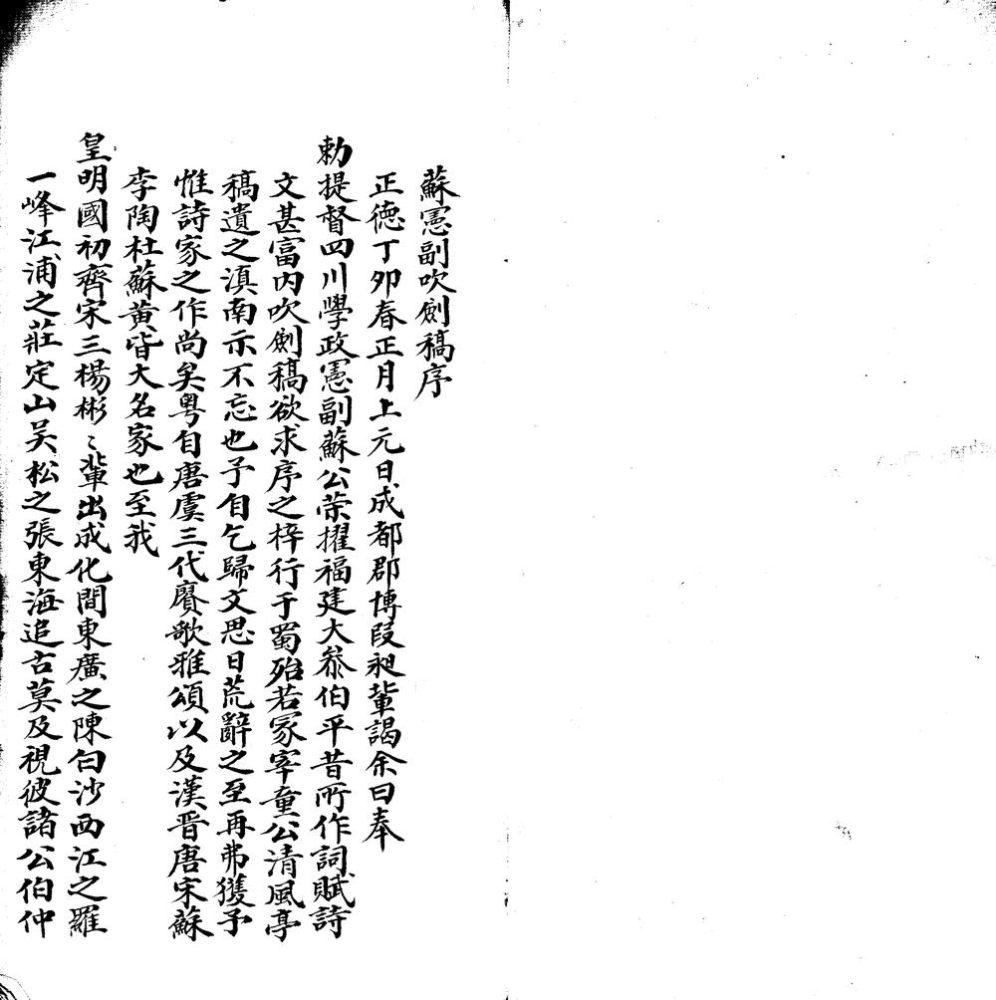 蘇憲副吹劍稿序
正德丁卯春正月上元日成都郡博段昶輩謁余曰奉
勅提督四川學政憲副蘇公荣擢福建大叅伯平昔所作詞賦詩
文甚富内吹劍稿欲求序之梓行于蜀殆若冢宰童公清風亭
稿遺之滇南示不忘也予自乞歸文思日荒辭之至再弗獲予
惟詩家之作尚矣粤自唐虞三代賡歌雅頌以及漢晋唐宋蘇
李陶杜蘇黄皆大名家也至我
皇明國初齊宋三楊彬〻輩出成化間東廣之陳白沙西江之羅
一峰江浦之莊定山吴松之張東海追古莫及視彼諸公伯仲